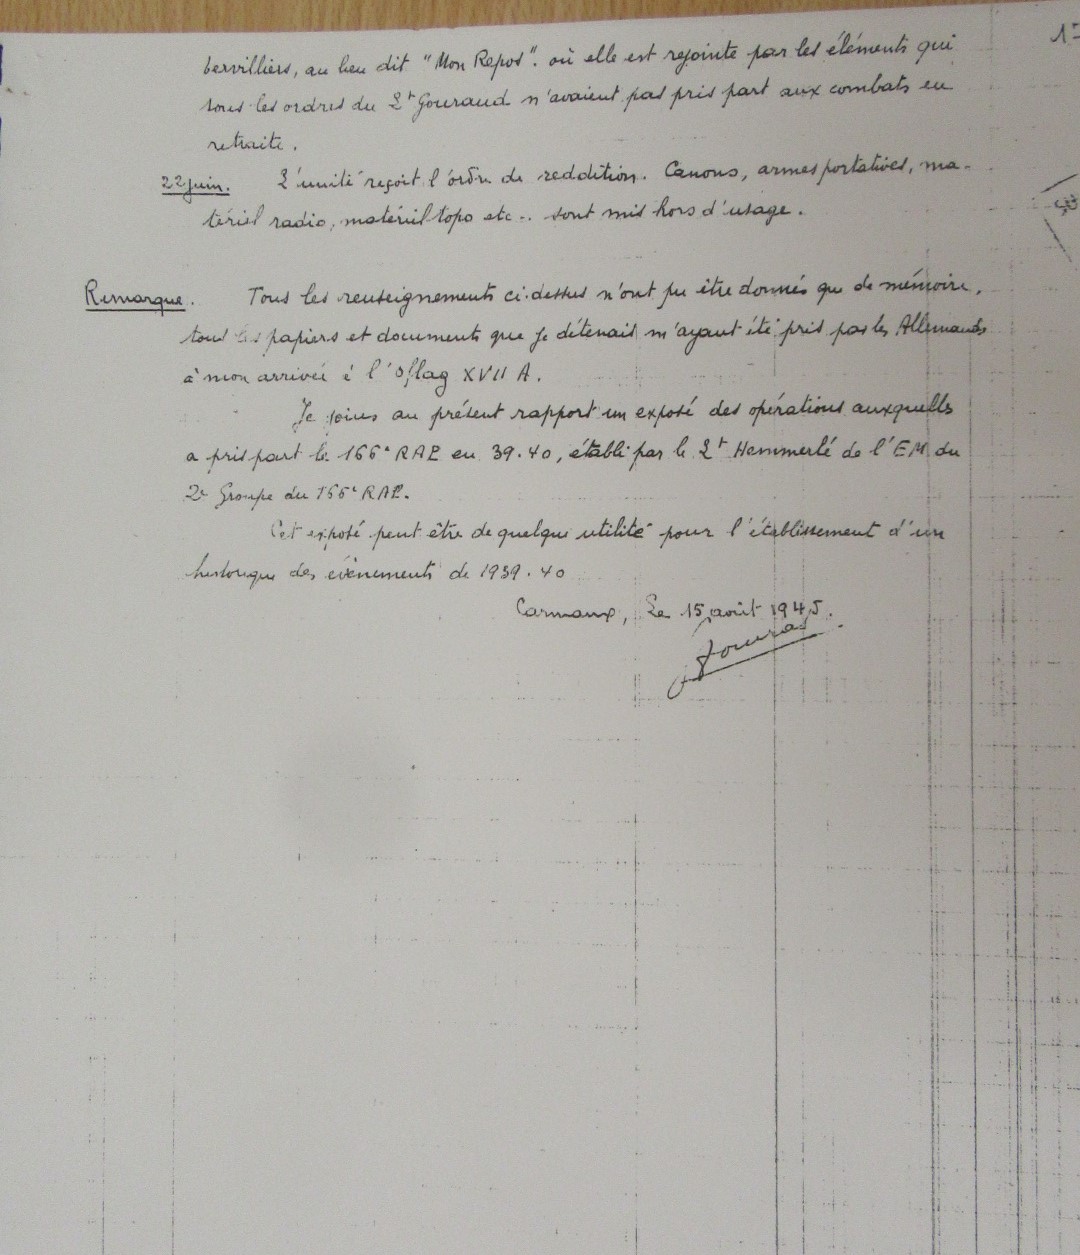 bervilliers, au lieu dit "Mon Repos". où elle est rejointe par les éléments qui
sous les ordres du Lt Gouraud n'avaient pas pris part aux combats en
retraite.
22 juin. L'unité reçoit l'ordre de reddition. Canons, armes portatives, ma-
tériel radio, matériel topo etc.. sont mis hors d'usage.
Remarque. Tous les renseignements ci-dessus n'ont pu être donnés que de mémoire,
tous les papiers et documents que je détenais m'ayant été pris par les Allemands
à mon arrivée à l'Oflag XVII A.
Je joins au présent rapport un exposé des opérations auxquelles
a pris part le 166e RAP en 39.40, établi par le Lt Hemmerlé de l'EM du
2e Groupe du 166e RAP.
Cet exposé peut être de quelque utilité pour l'établissement d'un
historique des événements de 1939.40
Carmaux, Le 15 août 1945.